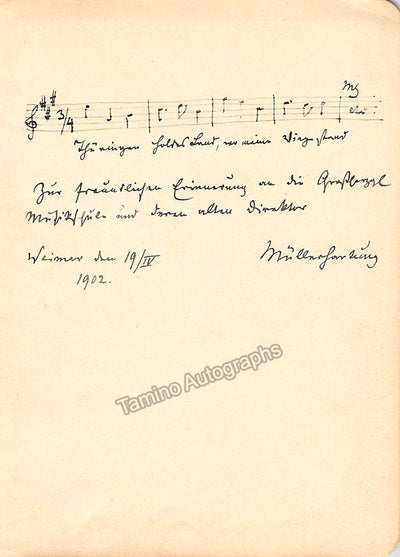 3/4
Mhg
etc.
Thüringen holdes Land, wo meine Wiege stand
Zur freundlichen Erinnerung an die Großherzgl
Musikschule und deren alten Direktor
Weimar den 19/IV
1902.
Müllerhartung
Tamino Autographs